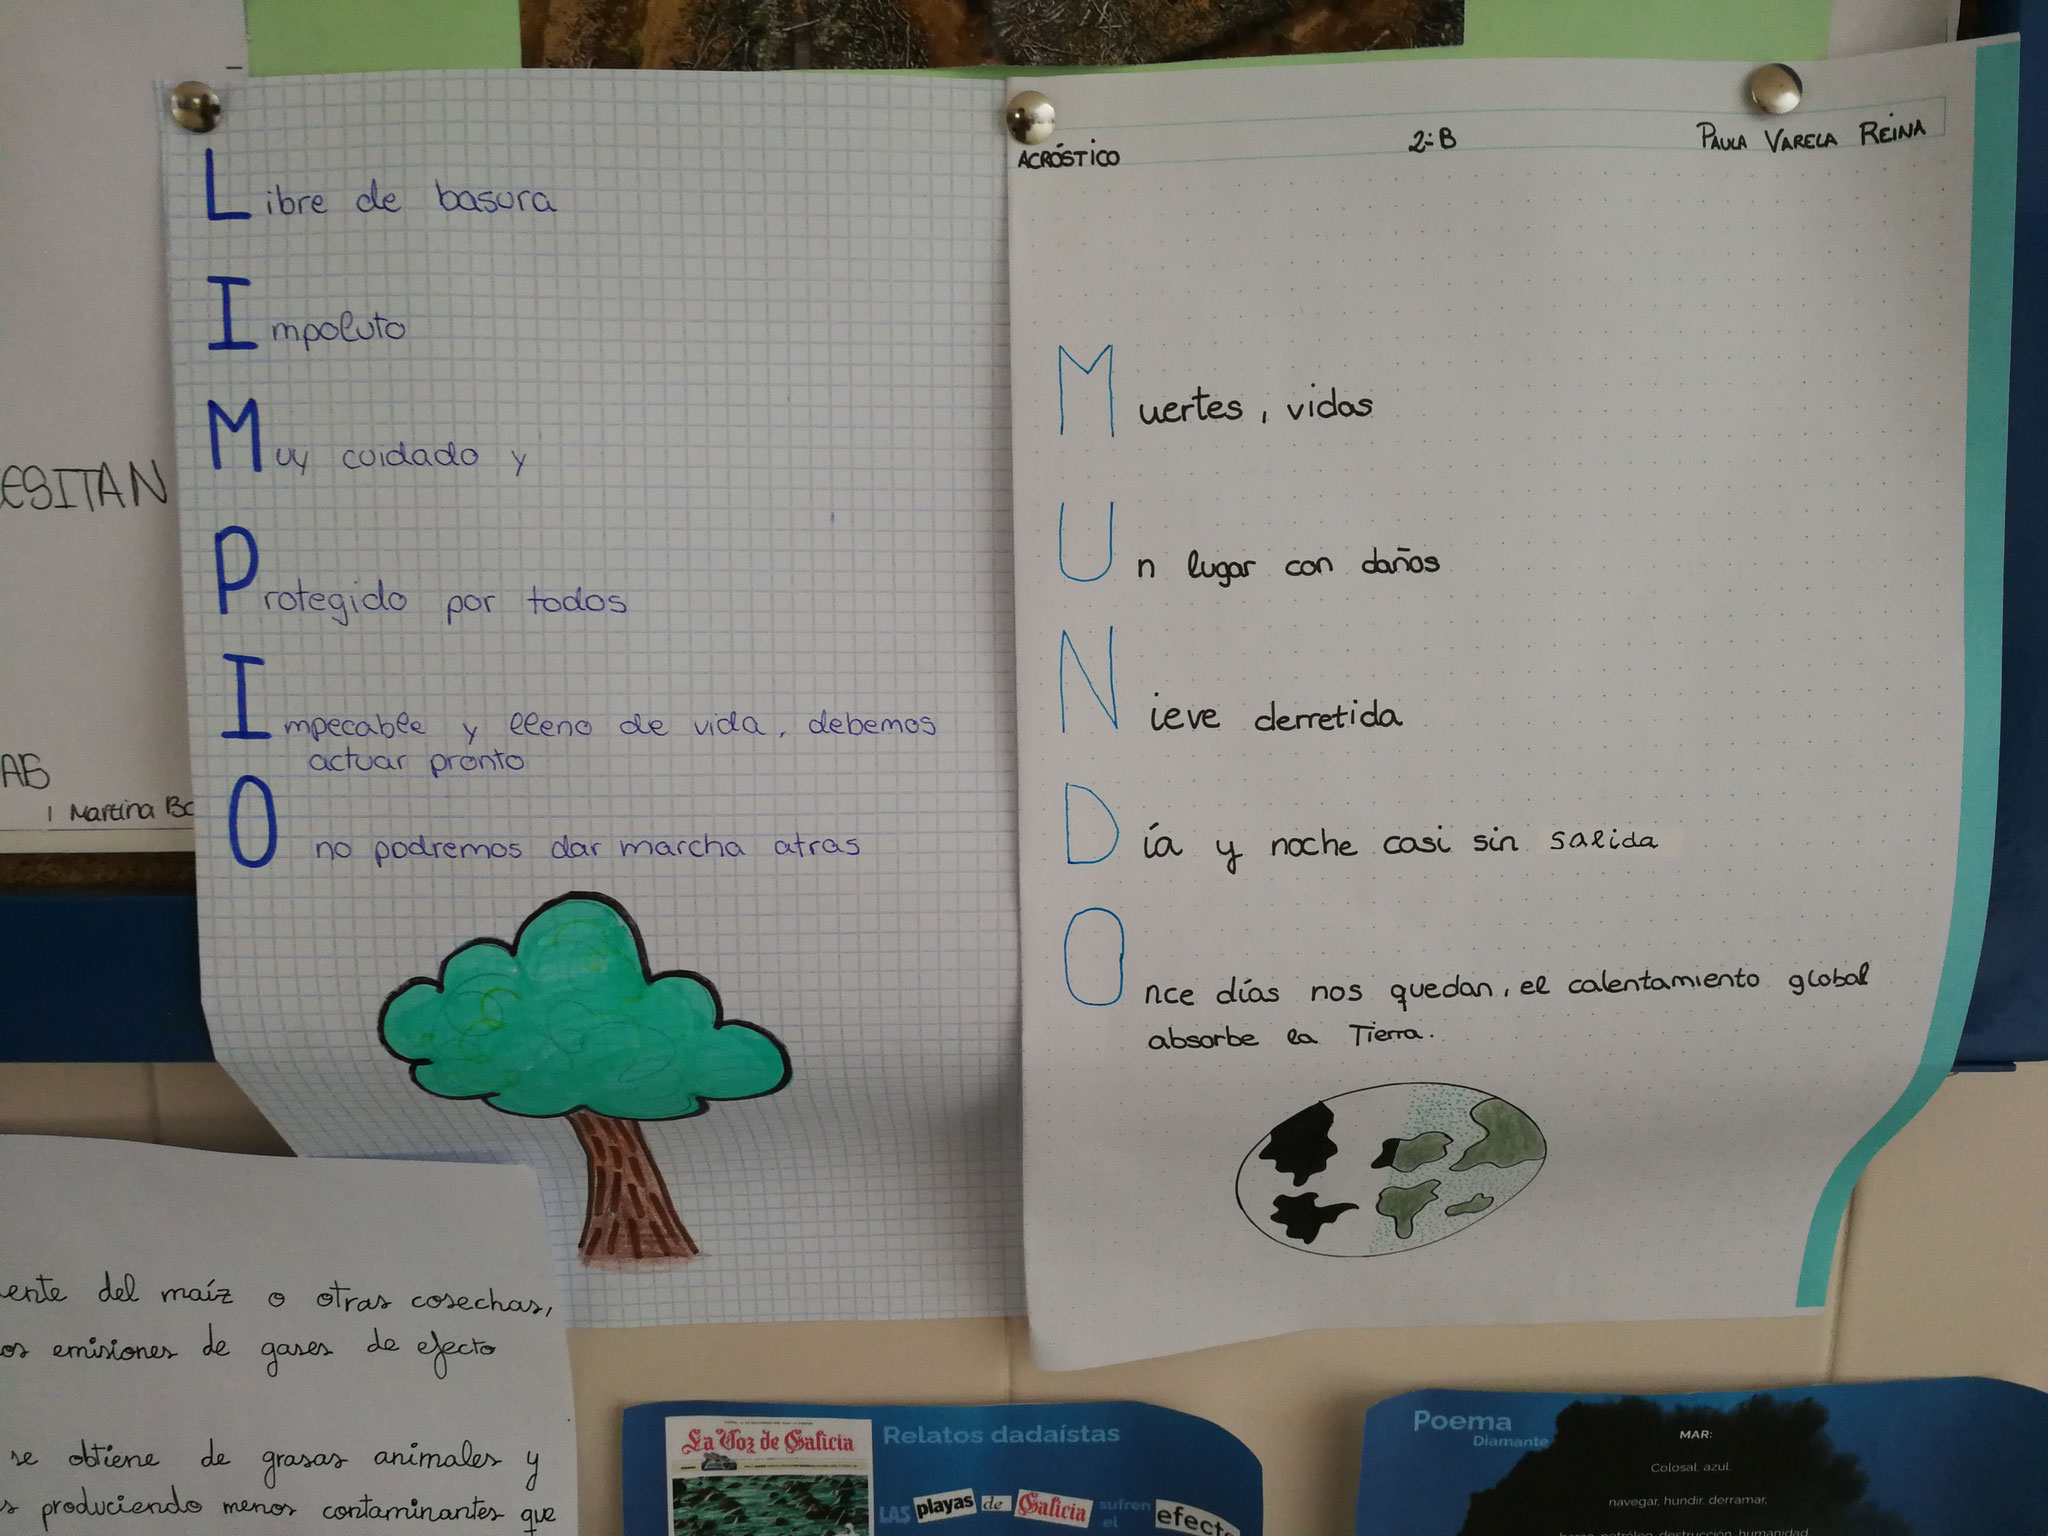 Libre de basura
Impoluto
Muy cuidado y
Protegido por todos
Impecable y lleno de vida, debemos
actuar pronto
O no podremos dar marcha atras
ACRÓSTICO 2º B PAULA VARELA REINA
Muertes, vidas
Un lugar con daños
Nieve derretida
Día y noche casi sin salida
Once días nos quedan, el calentamiento global
absorbe la Tierra.
ESITAN
AS
Martina
ente del maíz o otras cosechas,
os emisiones de gases de efecto
se obtiene de grasas animales y
s produciendo menos contaminantes que
La Voz de Galicia
Relatos dadaístas
LAS playas de Galicia sufren el efecto
Poema
Diamante
MAR:
Colosal, azul,
navegar, hundir, derramar,
petróleo, destrucción, humanidad